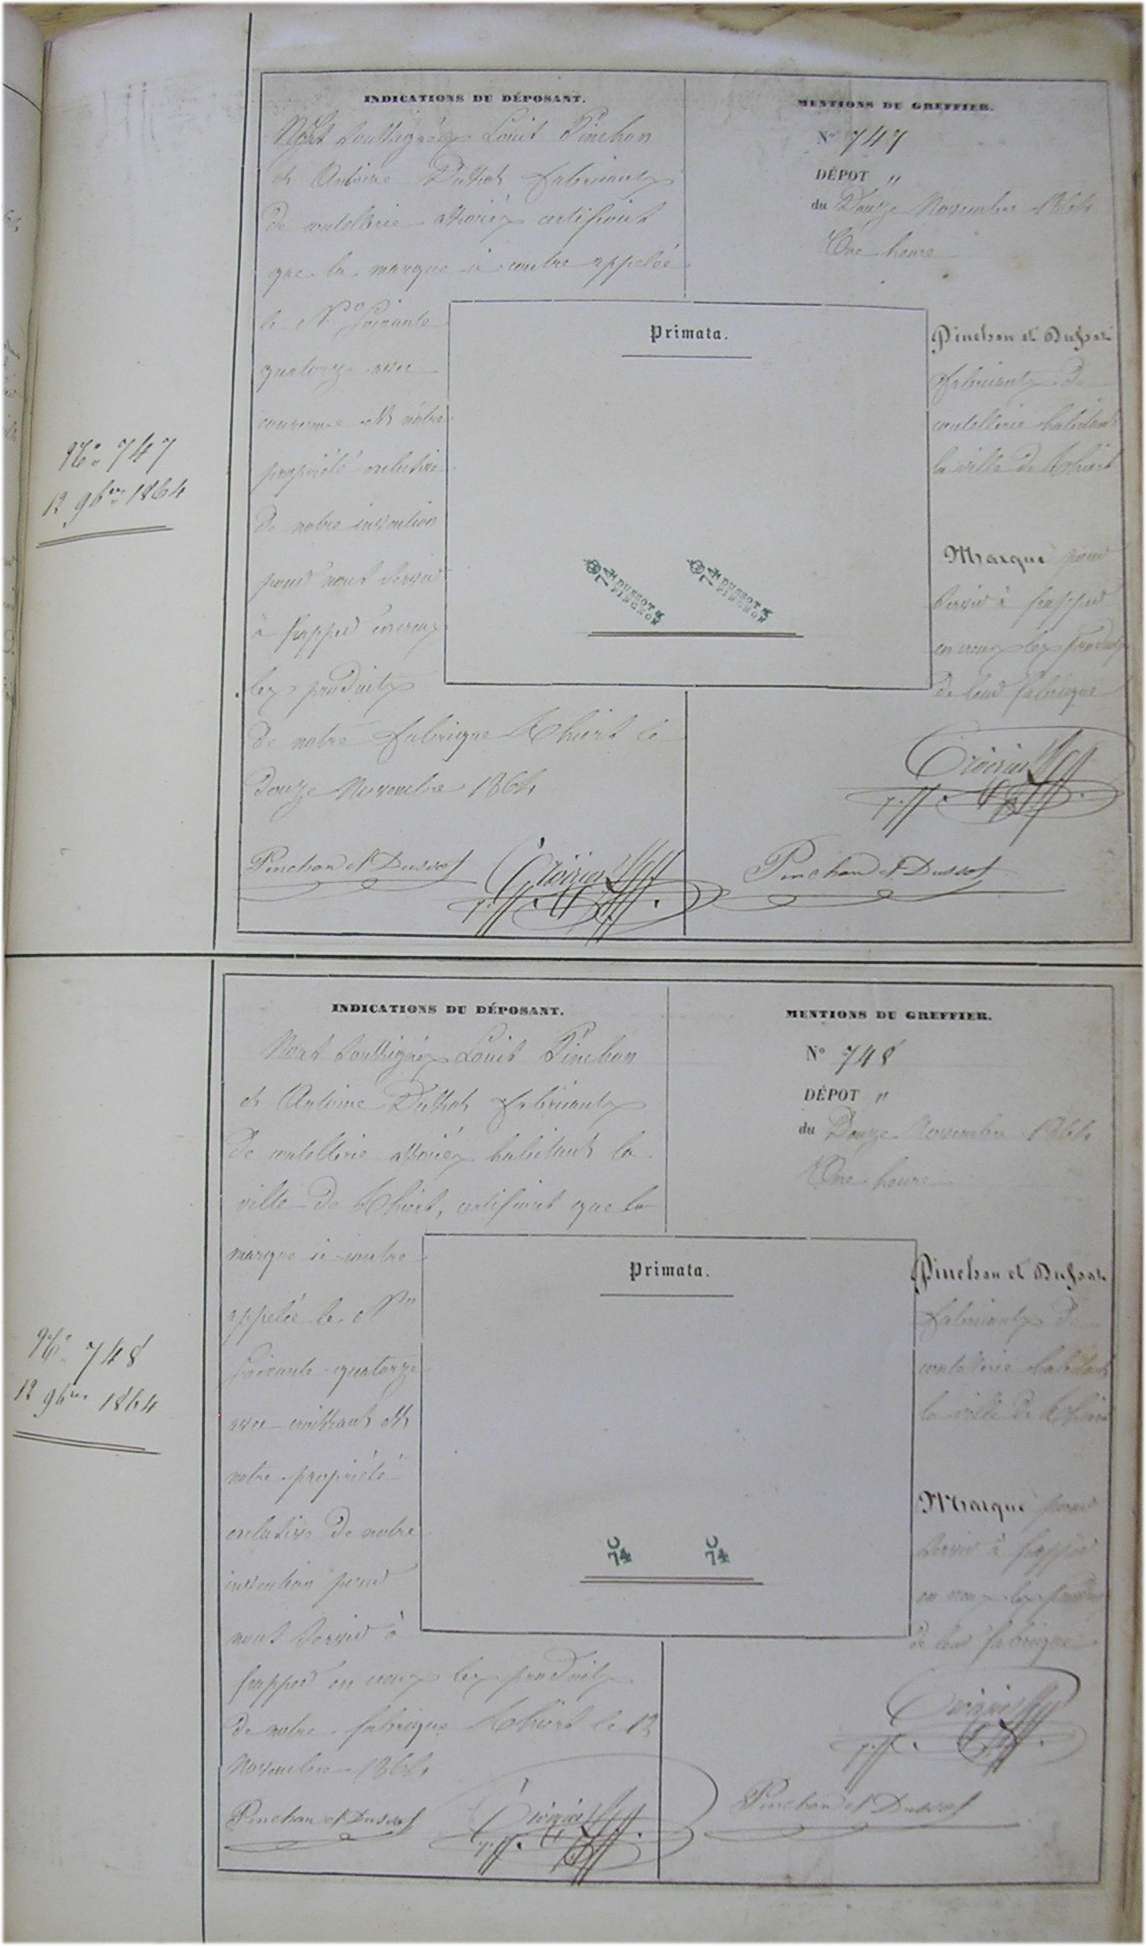 INDICATIONS DU DÉPOSANT.
Nous soussignés Louis Pinchon
et Antoine Dussot fabricants
de coutellerie associés certifions
que la marque ci contre appelée
le No Soixante
quatorze avec
couronne est notre
propriété exclusive
de notre invention
pour nous servir
à frapper en creux
les produits
de notre fabrique Thiers le
douze Novembre 1864
Pinchon et Dussot
MENTIONS DU GREFFIER.
No 747
DÉPOT "
du Douze Novembre 1864
Une heure
Primata.
DUSSOT &
PINCHON
DUSSOT &
PINCHON
Pinchon et Dussot
fabricants de
coutellerie habitant
la ville de Thiers
Marque pour
servir à frapper
en creux les produits
de leur fabrique
Pinchon et Dussot
No 747
12 9bre 1864
INDICATIONS DU DÉPOSANT.
Nous soussignés Louis Pinchon
et Antoine Dussot fabricants
de coutellerie associés habitant la
ville de Thiers, certifions que la
marque ci contre
appelée le No
soixante quatorze
avec croissant est
notre propriété
exclusive de notre
invention pour
nous servir à
frapper en creux les produits
de notre fabrique Thiers le 12
Novembre 1864
Pinchon et Dussot
MENTIONS DU GREFFIER.
No 748
DÉPOT "
du Douze Novembre 1864
Une heure
Primata.
74 74
Pinchon et Dussot
fabricants de
coutellerie habitant
la ville de Thiers
Marque pour
servir à frapper
en creux les produits
de leur fabrique
Pinchon et Dussot
No 748
12 9bre 1864